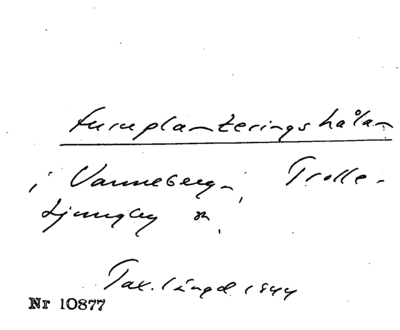 furuplanteringshålan
i Vanneberg, Trolle-
Ljungby sn.
Tax.längd 1944
Nr 10877